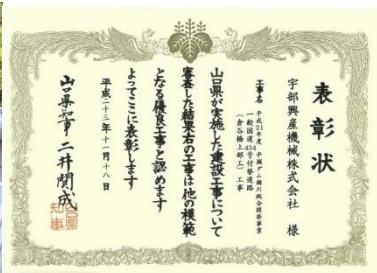 表彰状
宇部興産機械株式会社 様
工事名 平成21年度 平瀬ダム錦川総合開発事業
一般国道434号付替道路
(倉谷橋上部工)工事
山口県が実施した建設工事について
審査した結果右の工事は他の模範
となる優良工事と認めます
よってここに表彰します
平成二十三年十一月十八日
山口県知事 二井関成